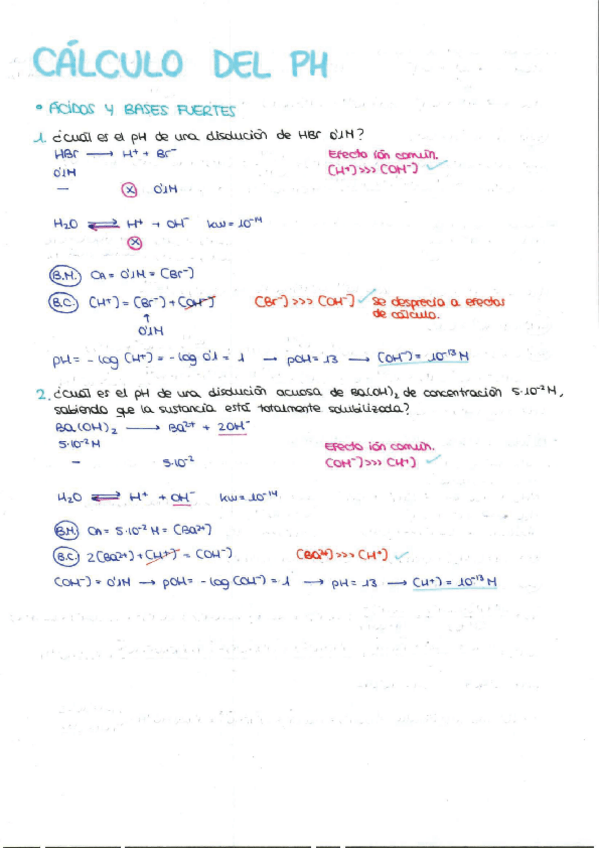 CÁLCULO DEL PH
• ÁCIDOS Y BASES FUERTES
1. ¿Cuál es el pH de una disolución de HBr 0'1M?
HBr ⟶ H⁺ + Br⁻ Efecto ión común.
0'1M [H⁺] >>> [OH⁻] ✓
— ⓧ 0'1M
H₂O ⇌ H⁺ + OH⁻ kw = 10⁻¹⁴
ⓧ
B.M. Ca = 0'1M = [Br⁻]
B.C. [H⁺] = [Br⁻] + [OH⁻] [Br⁻] >>> [OH⁻] ✓ Se desprecia a efectos
↑ de cálculo.
0'1M
pH = - log [H⁺] = - log 0'1 = 1 → pOH = 13 → [OH⁻] = 10⁻¹³ M
2. ¿Cuál es el pH de una disolución acuosa de Ba(OH)₂ de concentración 5·10⁻² M,
sabiendo que la sustancia está totalmente solubilizada?
Ba(OH)₂ ⟶ Ba²⁺ + 2OH⁻
5·10⁻² M Efecto ión común.
— 5·10⁻² [OH⁻] >>> [H⁺] ✓
H₂O ⇌ H⁺ + OH⁻ kw = 10⁻¹⁴
B.M. Ca = 5·10⁻² M = [Ba²⁺]
B.C. 2[Ba²⁺] + [H⁺] = [OH⁻] [Ba²⁺] >>> [H⁺] ✓
[OH⁻] = 0'1M → pOH = - log [OH⁻] = 1 → pH = 13 → [H⁺] = 10⁻¹³ M